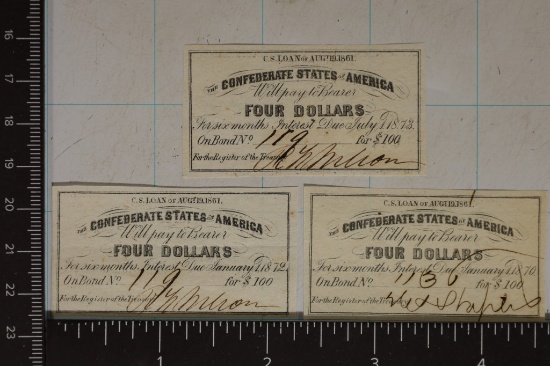 C.S. LOAN OF AUG.19.1861.
THE CONFEDERATE STATES OF AMERICA
Will pay to Bearer
FOUR DOLLARS
For six months Interest Due July 1, 1873.
On Bond No. for $100
For the Register of the Treasury
C.S. LOAN OF AUG.19,1861.
THE CONFEDERATE STATES OF AMERICA
Will pay to Bearer
FOUR DOLLARS
For six months Interest Due January 1, 1872.
On Bond No. for $100
For the Register of the Treasury
C.S. LOAN OF AUG.19,1861.
THE CONFEDERATE STATES OF AMERICA
Will pay to Bearer
FOUR DOLLARS
For six months Interest Due January 1, 1870
On Bond No. 1136 for $100
For the Register of the Treasury
16
17
18
19
20
21
22
23
1
2
3
4